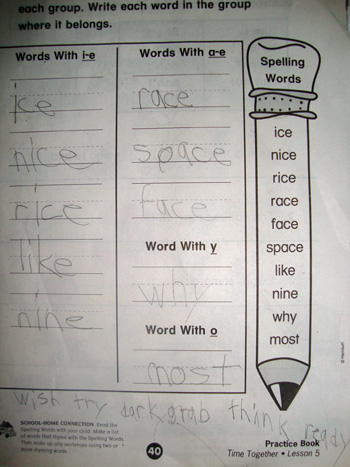 each group. Write each word in the group
where it belongs.
Words With i-e
ice
nice
rice
like
nine
Words With a-e
race
space
face
Word With y
why
Word With o
most
Spelling
Words
ice
nice
rice
race
face
space
like
nine
why
most
wish try dark grab think ready
SCHOOL-HOME CONNECTION Read the
Spelling Words with your child. Make a list
of words that rhyme with the Spelling Words.
Then make up silly sentences using two or
more rhyming words.
40
Practice Book
Time Together • Lesson 5
© Harcourt